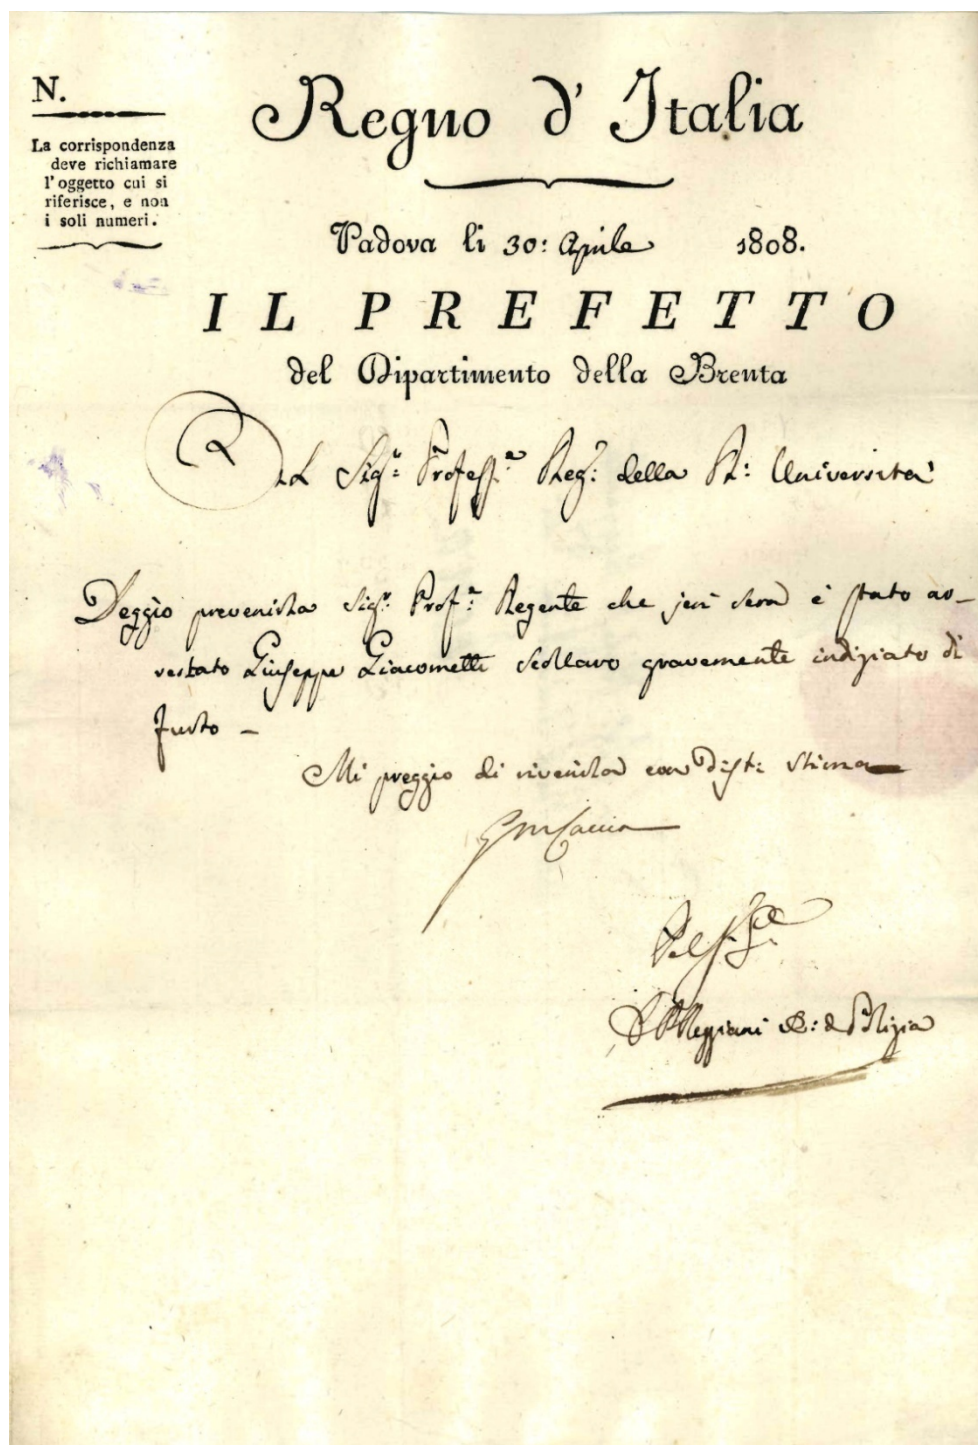 N.
La corrispondenza
deve richiamare
l'oggetto cui si
riferisce, e non
i soli numeri.
Regno d'Italia
Padova li 30: Aprile 1808.
IL PREFETTO
del Dipartimento della Brenta
Al Sigr: Profess.r Reg: della R: Università
Deggio prevenirla Sigr: Prof.r Regente che jeri sera è stato ar-
restato Giuseppe Giacometti Scollaro gravemente indiziato di
furto -
Mi preggio di riverirla con dist: stima
Caccia
di Polizia